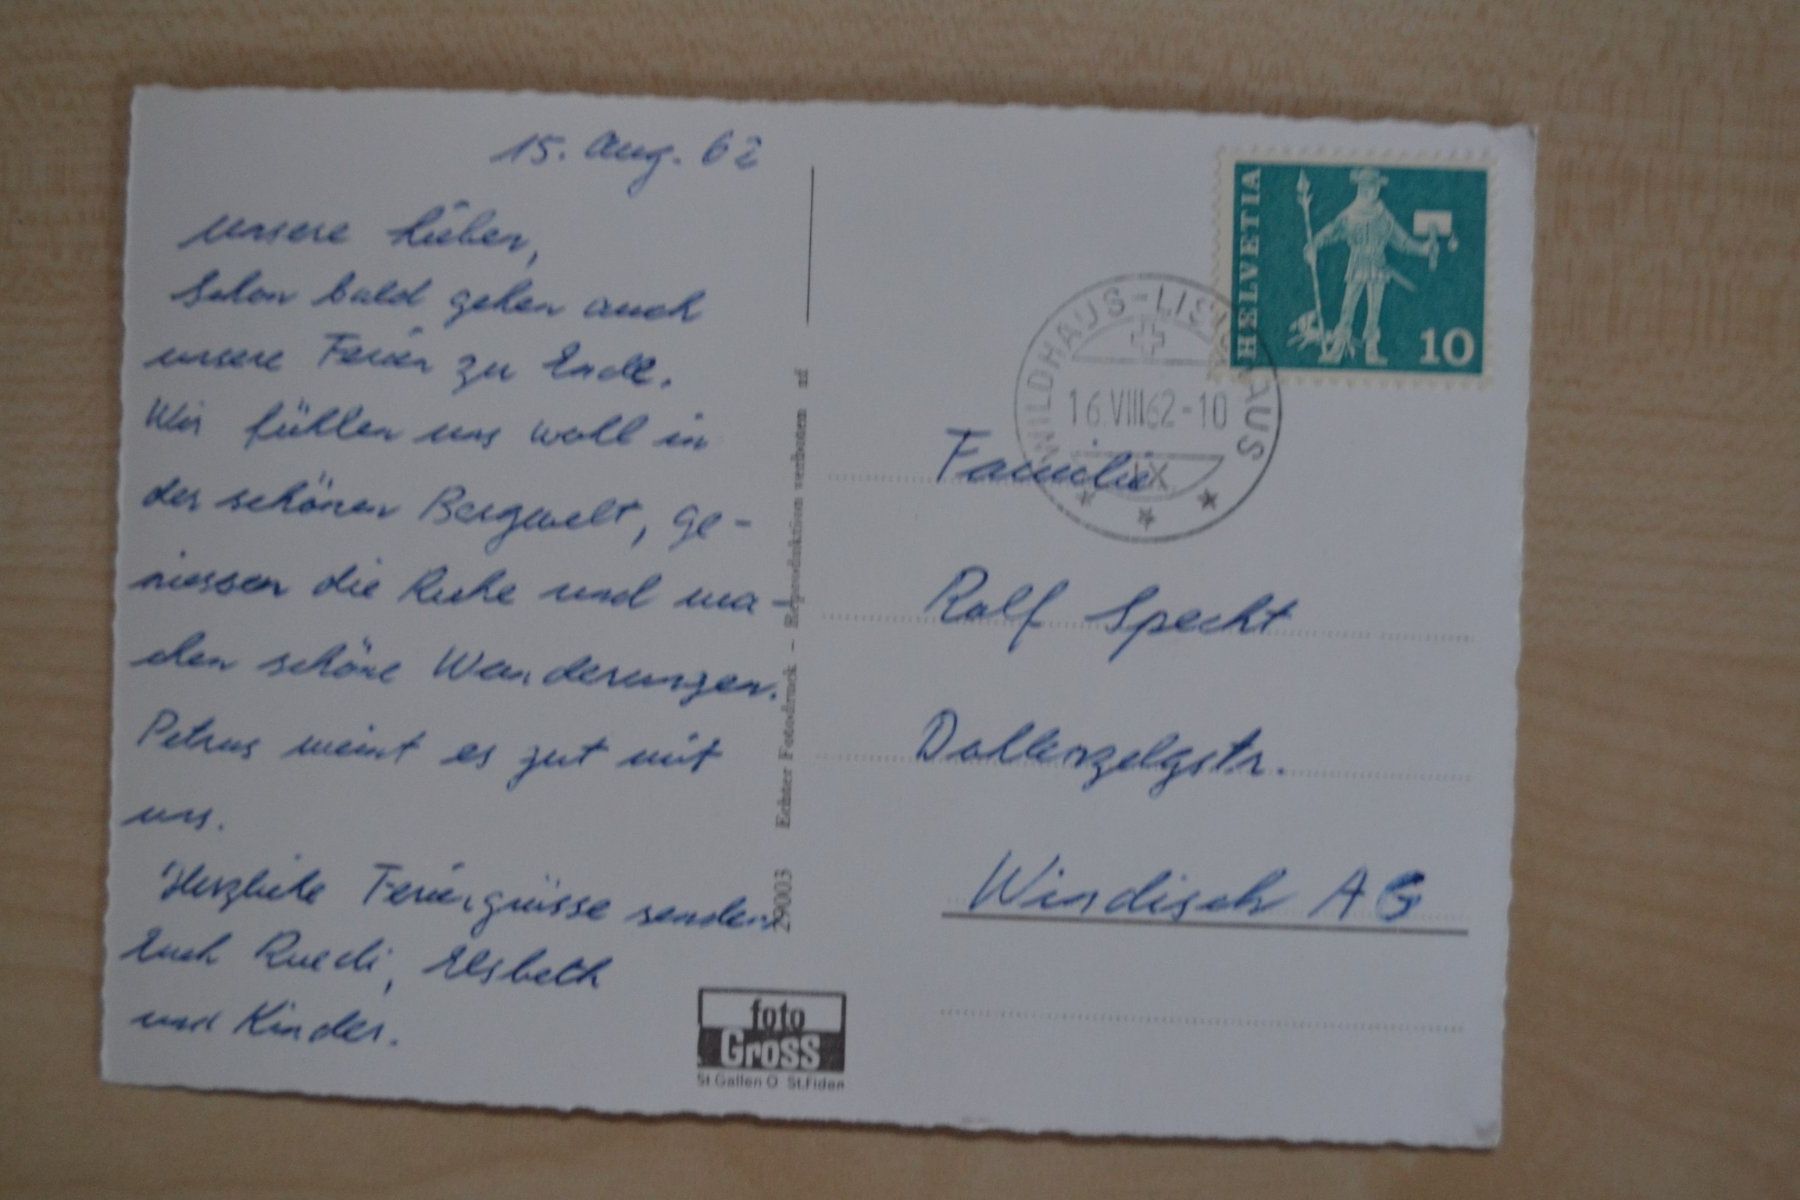 15. Aug. 62
Unsere Lieben,
Schon bald gehen auch
unsere Ferien zu Ende.
Wir fühlen uns wohl in
der schönen Bergwelt, ge-
niessen die Ruhe und ma-
chen schöne Wanderungen.
Petrus meint es gut mit
uns.
Herzliche Feriengrüsse senden
Euch Ruedi, Elsbeth
und Kinder.
29003 Echter Fotodruck – Reproduktion verboten
foto
Gross
St.Gallen O St.Fiden
HELVETIA
10
WILDHAUS-LISIGHAUS
16.VIII.62-10
Familie
Ralf Specht
Dohlenzelgstr.
Windisch AG